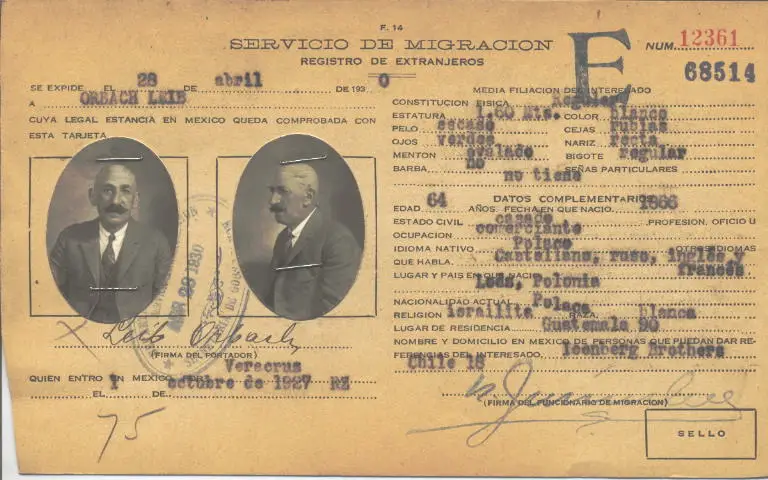 F. 14
SERVICIO DE MIGRACION
REGISTRO DE EXTRANJEROS
E
NUM. 12361
68514
SE EXPIDE EL 28 DE abril DE 1930
A ORBACH LEIB
CUYA LEGAL ESTANCIA EN MEXICO QUEDA COMPROBADA CON
ESTA TARJETA
Leib Orbach
(FIRMA DEL PORTADOR)
QUIEN ENTRO EN MEXICO POR Veracruz
EL 1 DE octubre de 1927 RZ
75
MEDIA FILIACION DEL INTERESADO
CONSTITUCION FISICA Regular
ESTATURA 1.60 Mts. COLOR blanco
PELO escaso CEJAS rubias
OJOS verdes NARIZ recta
MENTON ovalado BIGOTE regular
BARBA no SEÑAS PARTICULARES
no tiene
DATOS COMPLEMENTARIOS
EDAD 64 AÑOS. FECHA EN QUE NACIO 1866
ESTADO CIVIL casado PROFESION, OFICIO U
OCUPACION comerciante
IDIOMA NATIVO Polaco OTROS IDIOMAS
QUE HABLA Castellano, ruso, inglés y
francés
LUGAR Y PAIS EN QUE NACIO
Lodz, Polonia
NACIONALIDAD ACTUAL Polaca
RELIGION israelita RAZA blanca
LUGAR DE RESIDENCIA Guatemala 90
NOMBRE Y DOMICILIO EN MEXICO DE PERSONAS QUE PUEDAN DAR RE-
FERENCIAS DEL INTERESADO. Brothers
Chile 18
(FIRMA DEL FUNCIONARIO DE MIGRACION)
SELLO